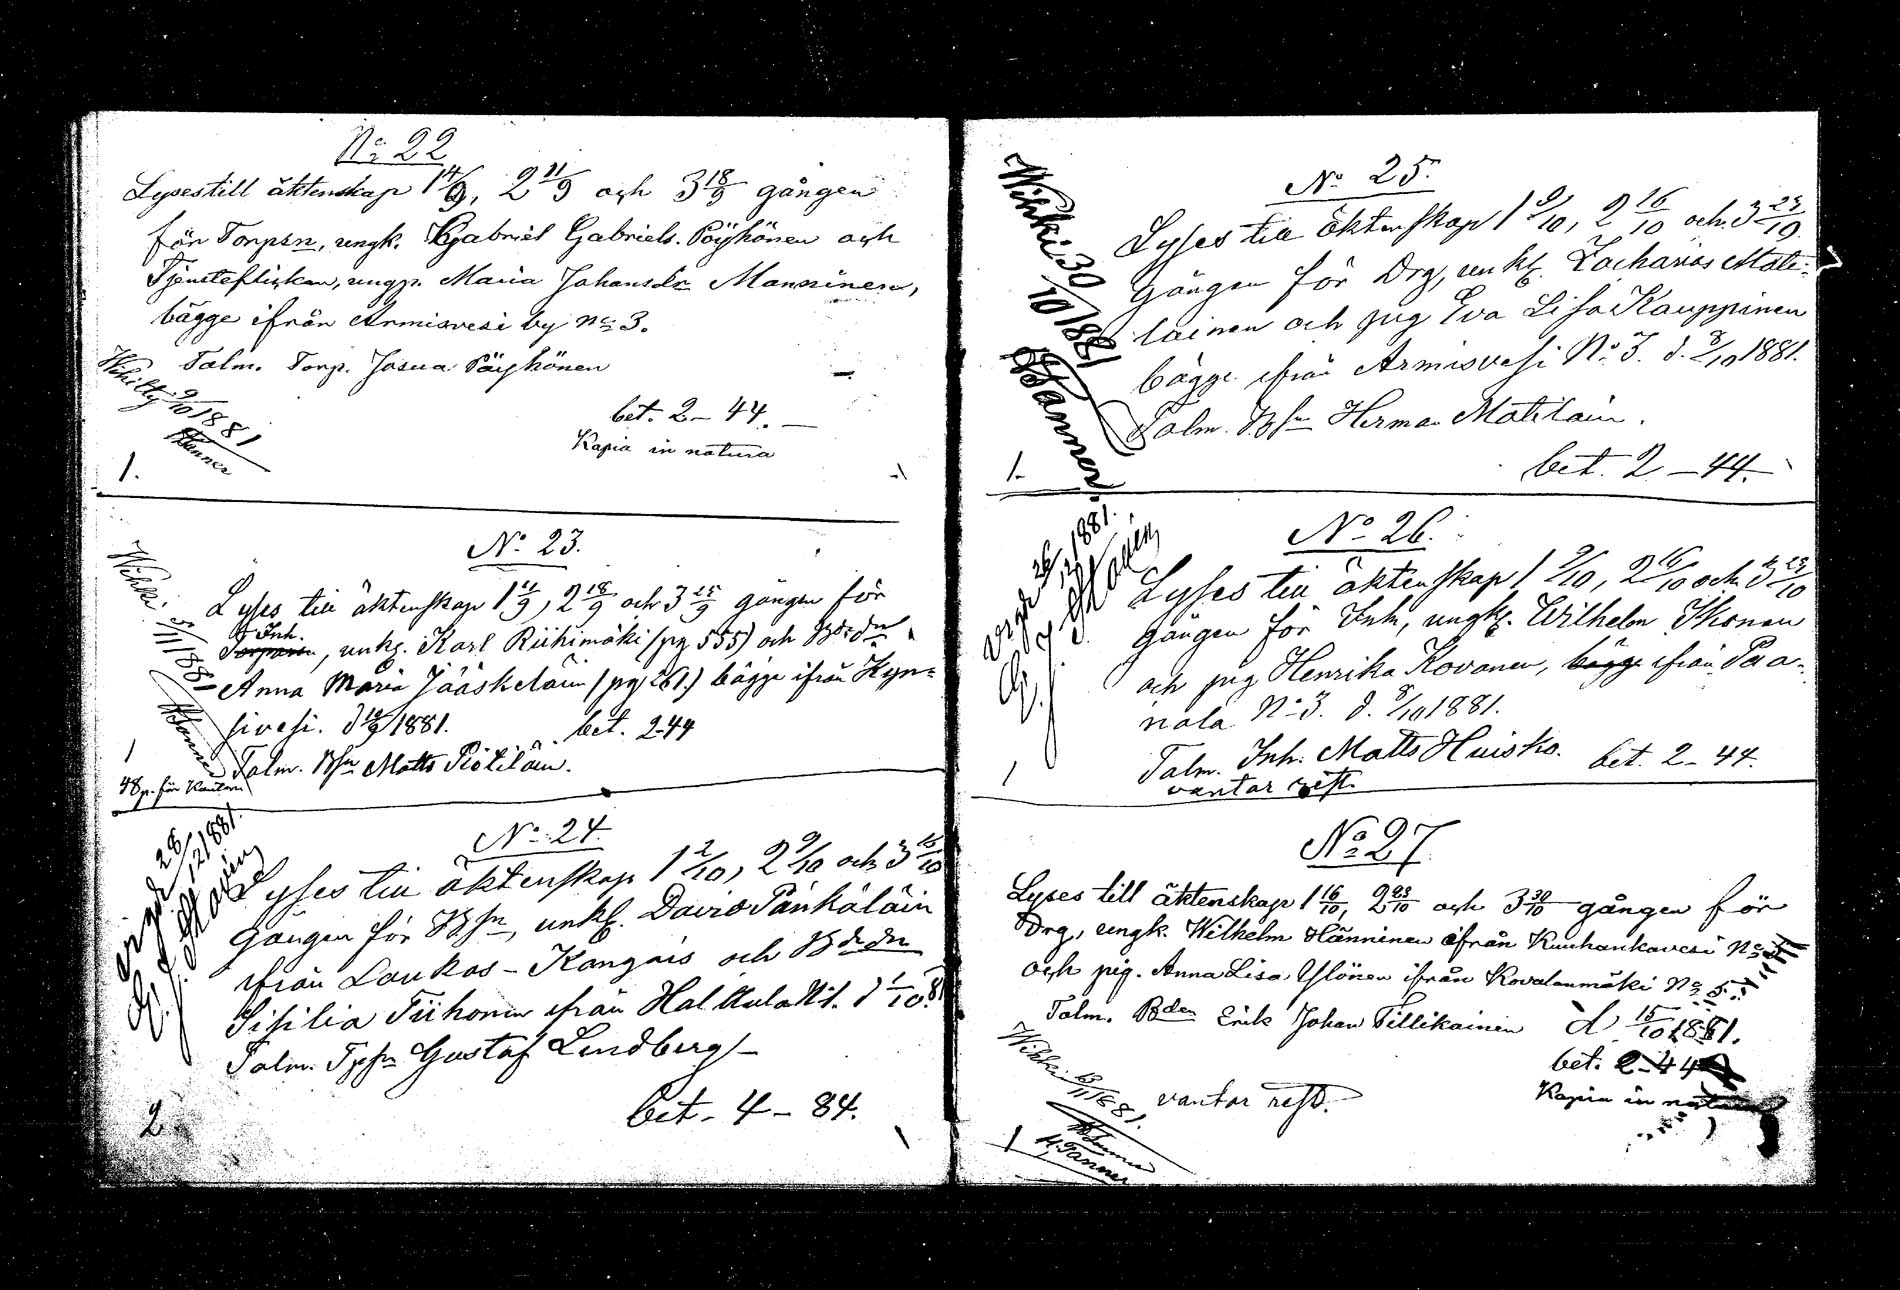 No 22
Lyses till äktenskap 1 4/9, 2 11/9 och 3 18/9 gången
för Torpsn, ungk. Gabriel Gabriels. Pöyhönen och
Tjensteflickan, ungp. Maria Johansdr Manninen,
bägge ifrån Armisvesi by No 3.
Talm. Torp. Josua Pöyhönen
Wihitty 9/10 1881
Tanner
bet. 2-44.
Kapia in natura
1.
No 23.
Lyses till äktenskap 1 11/9, 2 18/9 och 3 25/9 gången för
Inh.
Torparen, unkg. Karl Riihimäki (pg 555) och Bdedn
Anna Maria Jääskeläin (pg 261.) bägge ifrån Kyn-
sivesi. d 10/9 1881. bet. 2-44
Talm. Bsn Matts Piötiläin.
Wihki. 5/11 1881
Tanner
1
48 p. för Kantorn
No 24.
Lyses till äktenskap 1 2/10, 2 9/10 och 3 16/10
gången för Bsn, unkg. David Pänkäläin
ifrån Laukas-Kangais och Bdedn
Sisilia Tiihonen ifrån Halkula N:1. d 1/10 81
Talm. Tpsn Gustaf Lindberg
vigde 28/12 1881.
bet. 4-84.
2
No 25.
Lyses till äktenskap 1 9/10, 2 16/10 och 3 23/10
gången för Drg, unkg. Zacharias Mati-
lainen och pig Eva Lisa Kauppinen
bägge ifrån Armisvesi No 3. d. 8/10 1881.
Talm. Bsn Herman Matilain.
bet. 2-44.
Wihki 30/10 1881
Tanner.
1.
No 26.
Lyses till äktenskap 1 9/10, 2 16/10 och 3 23/10
gången för Inh, ungkg. Wilhelm Ikonen
och pig Henrika Kovanen, bägge ifrån Paa-
nala No 3. d. 8/10 1881.
Talm. Inh. Matts Huisko. bet. 2-44.
vantar rest.
vigde 26/12 1881.
1
No 27
Lyses till äktenskap 1 16/10, 2 23/10 och 3 30/10 gången för
Drg, ungk. Wilhelm Hänninen ifrån Kuuhankavesi No
och pig. Anna Lisa Ylönen ifrån Kovalanmäki No 5.
Talm. Bden Erik Johan Tillikainen d. 15/10 1881.
bet. 2-44
Kapia in natura
vantar rest.
Wihki 13/11 1881.
H. Tanner
1